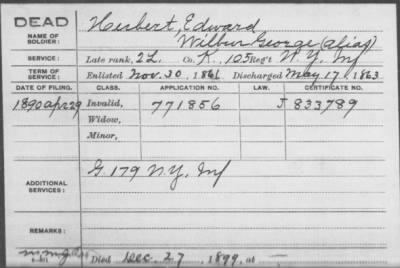 DEAD Herbert, Edward
NAME OF SOLDIER: Wilbur George (alias)
SERVICE: Late rank, 2 L. Co. K, 105 Reg't N. Y. Inf
TERM OF SERVICE: Enlisted Nov. 30, 1861 Discharged May 17, 1863
DATE OF FILING. CLASS. APPLICATION NO. LAW. CERTIFICATE NO.
1890 apr 29 Invalid, 771856 J 833789
Widow,
Minor,
ADDITIONAL SERVICES: G. 179 N.Y. Inf
REMARKS:
Died Dec. 27, 1899, at